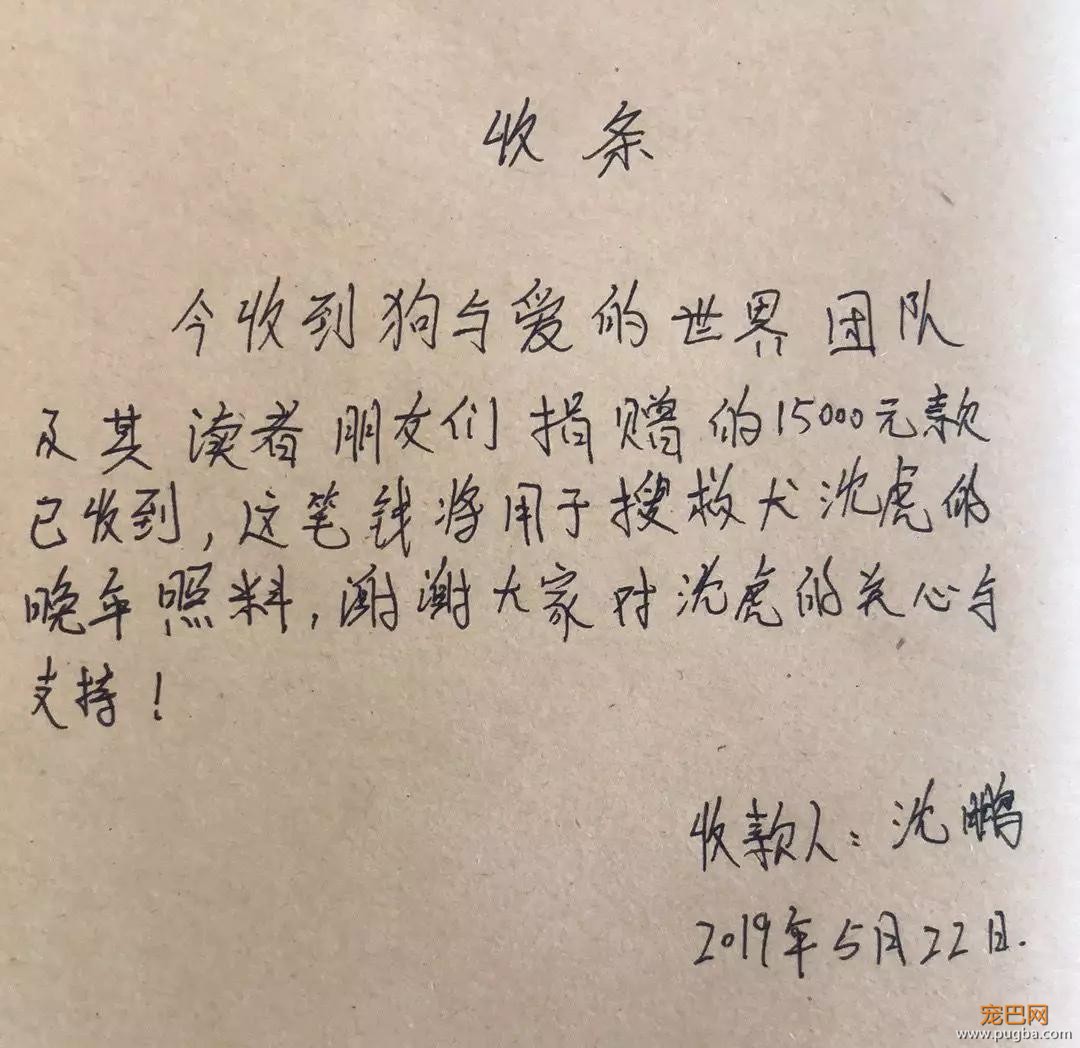 收条
今收到狗与爱的世界团队
及其读者朋友们捐赠的15000元款
已收到,这笔钱将用于搜救犬沈虎的
晚年照料,谢谢大家对沈虎的关心与
支持!
收款人:沈鹏
2019年5月22日.
宠巴网
www.pugba.com